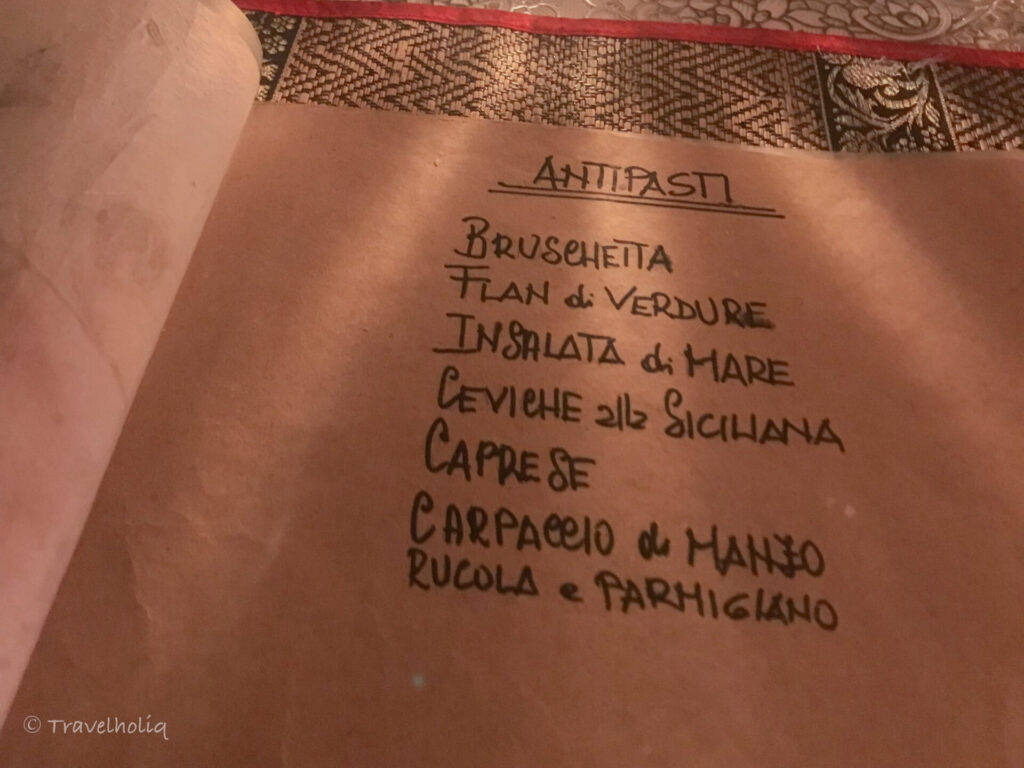 ANTIPASTI
BRUSCHETTA
FLAN di VERDURE
INSALATA di MARE
CEVICHE alla SICILIANA
CAPRESE
CARPACCIO di MANZO
RUCOLA e PARMIGIANO
© Travelholiq